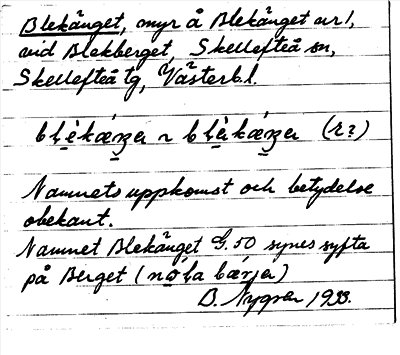 Blekänget, myr å Blekänget nr 1,
vid Blekberget, Skellefteå sn,
Skellefteå tg, Västerb. l.
(r?)
Namnets uppkomst och betydelse
obekant.
Namnet Blekänget G. 50 synes syfta
på Berget (
B. Nygren 1933.